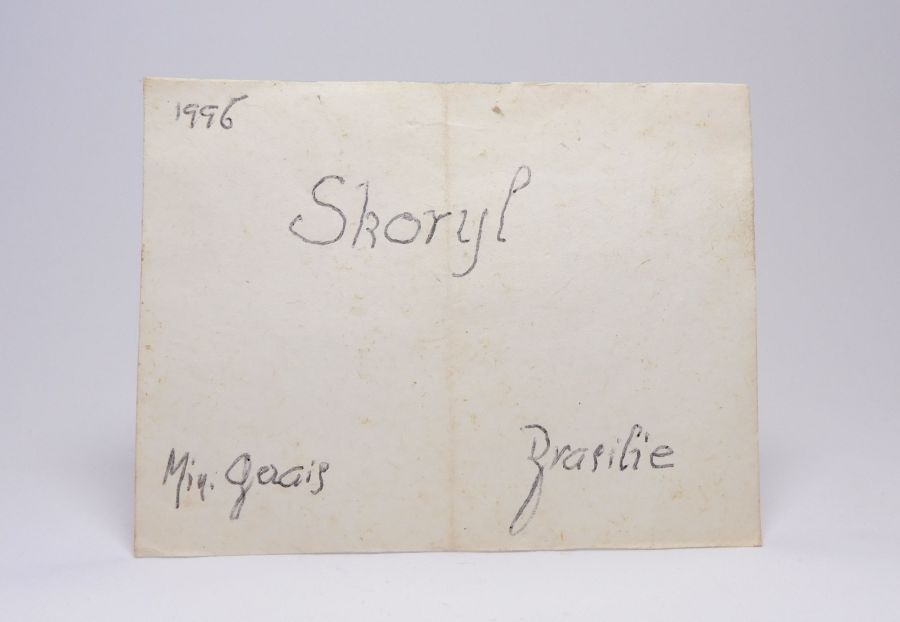 1996
Skoryl
Min. Gerais Brasilie